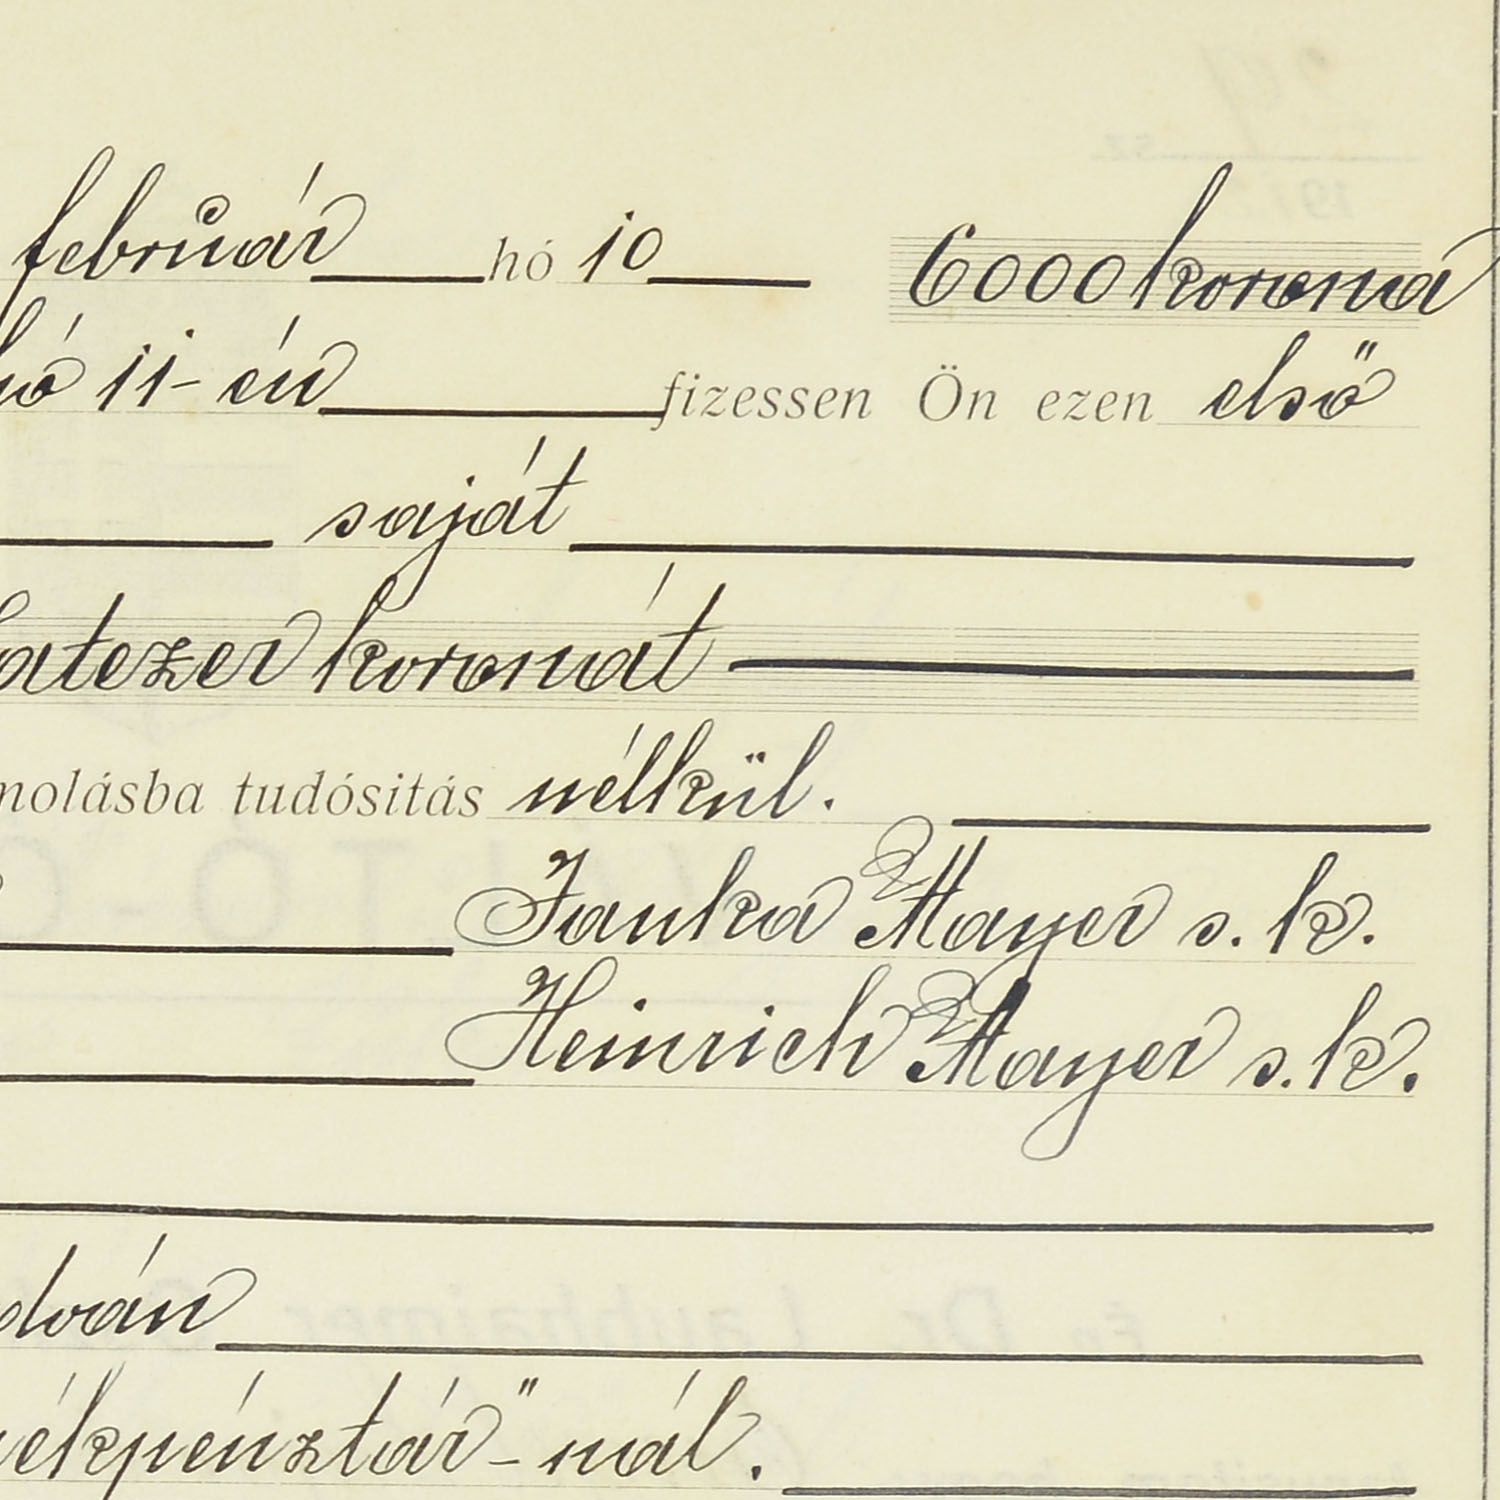 február hó 10 6000 korona
hó 11-én fizessen Ön ezen első
saját
hatezer koronát
molásba tudósitás nélkül.
Janka Mayer s. k.
Heinrich Mayer s. k.
dván
ékpénztár"-nál.